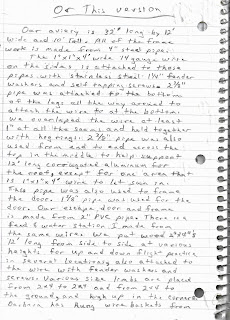 Or This version
Our aviary is 32' long by 12'
wide and 10' Tall. All of the frame
work is made from 4" steel pipe.
The 1"x1"x4' wide 14 gauge wire
on the sides is attached to these
pipes with stainless steel 1 1/4" fender
washers and self tapping screws. 2 3/8"
pipe was attached to the bottom
of the legs all the way around to
attach the wire to at the bottom
we overlapped the wire at least
1" at all the seams and held together
with hog rings. 2 3/8" pipe was also
used from end to end across the
top in the middle to help support
12' long corrugated aluminum for
the roof, except for one area that
is 1"x1"x4' wire to let sun in.
This pipe was also used to frame
the door. 1 5/8" pipe was used for the
door. Our escape door and frame
is made from 2" PVC pipe. There is a
feed & water station I made from
the same wire. We put wood 2"x4"s
12' long from side to side at various
heights for up and down flight practice
in several locations also attached to
the wire with fender washers and
screws. Various size limbs are placed
from 2x4 to 2x4 and from 2x4 to
the ground, and high up in the corners
Barbara has hung wire baskets from